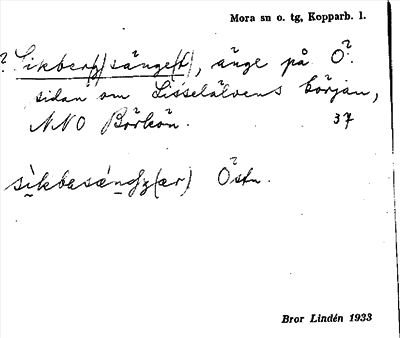 Mora sn o. tg, Kopparb. l.
? Sikber(g)sänge(t), änge på Ö.
sidan om Lisselälvens början,
NNO Börkön. 37
Östn.
Bror Lindén 1933